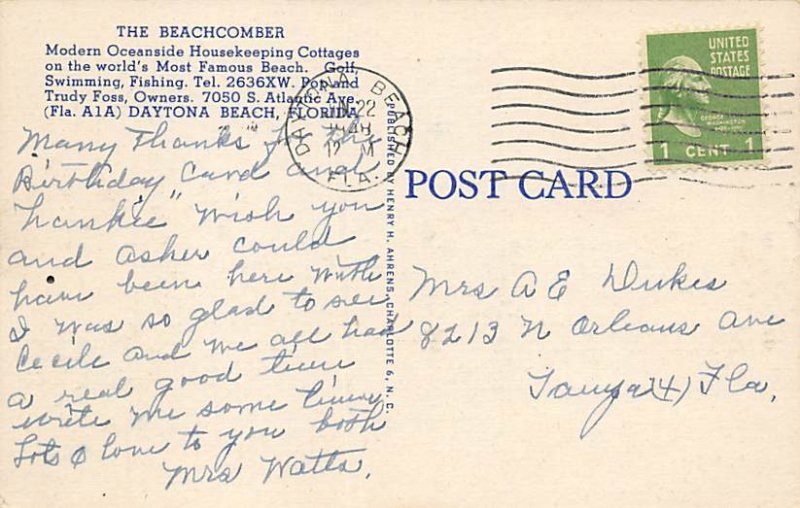 THE BEACHCOMBER
Modern Oceanside Housekeeping Cottages
on the world's Most Famous Beach. Golf,
Swimming, Fishing. Tel. 2636XW. Pop and
Trudy Foss, Owners. 7050 S. Atlantic Ave.
(Fla. A1A) DAYTONA BEACH, FLORIDA
Many Thanks for the
Birthday Card and
"hankie" Wish you
and Asher could
have been here with
I was so glad to see
Cecile and we all had
a real good time
write me some time
Lots & love to you both
Mrs Watts.
DAYTONA BEACH
22
12 M
FLA.
PUBLISHED BY HENRY H. AHRENS, CHARLOTTE 6, N. C.
UNITED
STATES
POSTAGE
GEORGE WASHINGTON
1 CENT 1
POST CARD
Mrs A E Dukes
8213 N Orleans Ave
(4) Fla.